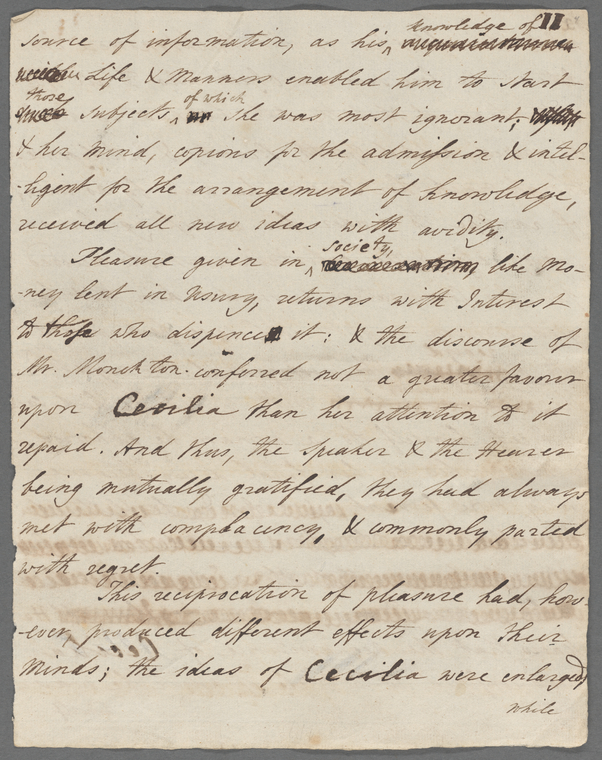 11
knowledge of
source of information, as his
Life & Manners enabled him to start
those of which
subjects she was most ignorant;
& her mind, copious for the admission & intel-
-ligent for the arrangement of knowledge,
received all new ideas with avidity.
society,
Pleasure given in like mo-
-ney lent in Usury, returns with Interest
to those who dispence it: & the discourse of
Mr. Monckton conferred not a greater favour
upon Cecilia than her attention to it
repaid. And thus, the speaker & the Hearer
being mutually gratified, they had always
met with complacency, & commonly parted
with regret.
This reciprocation of pleasure had, how-
-ever, produced different effects upon their
minds; the ideas of Cecilia were enlarged,
while